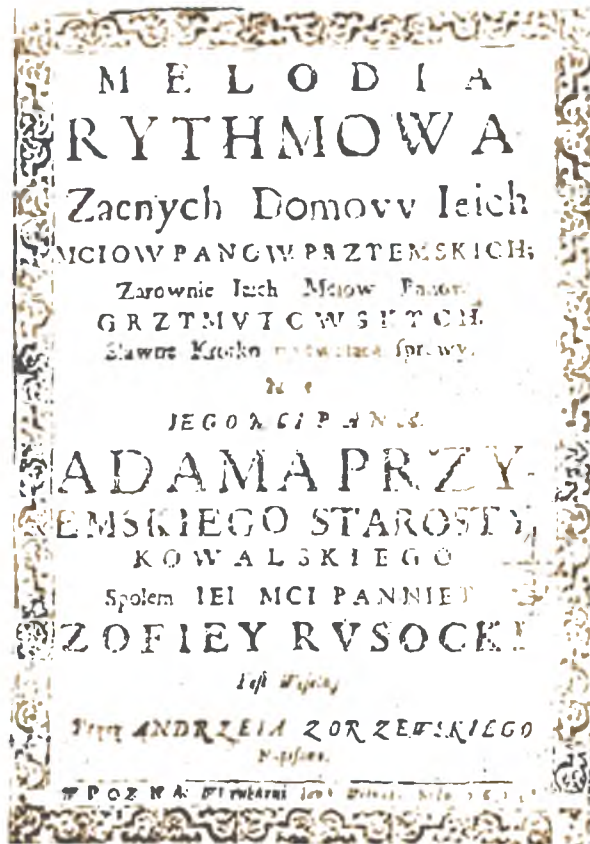 MELODIA
RYTHMOWA
Zacnych Domovv Ieich
MCIOW PANOW PRZYEMSKICH;
Zarownie Ieich Mciow Panow
GRZYMVŁTOWSKYCH.
Sławne Krotko sprawy.
Na
JEGO MCI PANA
ADAMA PRZY-
EMSKIEGO STAROSTY,
KOWALSKIEGO
Społem IEI MCI PANNIE
ZOFIEY RVSOCKI
Fest
Przez ANDRZEIA ZORZEWSKIEGO
Napisana.
W POZNA: W Drukarni Jana